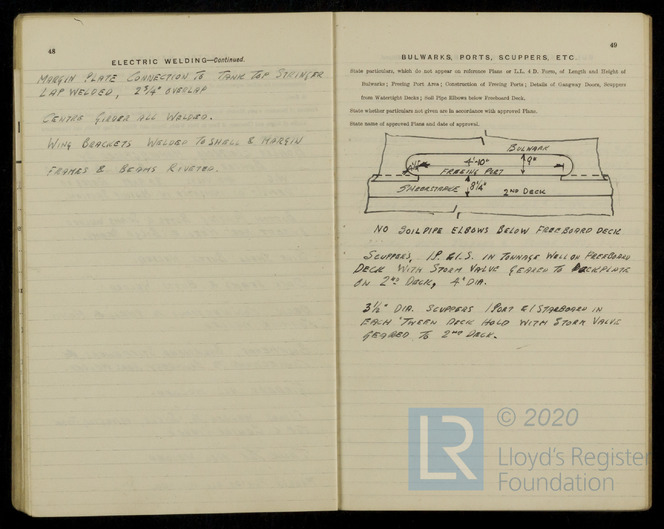 48
ELECTRIC WELDING—Continued.
MARGIN PLATE CONNECTION TO TANK TOP STRINGER
LAP WELDED, 2 3/4" OVERLAP
CENTRE GIRDER ALL WELDED.
WING BRACKETS WELDED TO SHELL & MARGIN
FRAMES & BEAMS RIVETED.
49
BULWARKS, PORTS, SCUPPERS, ETC
State particulars, which do not appear on reference Plans or L.L. 4 D. Form, of Length and Height of
Bulwarks; Freeing Port Area; Construction of Freeing Ports; Details of Gangway Doors, Scuppers
from Watertight Decks; Soil Pipe Elbows below Freeboard Deck.
State whether particulars not given are in accordance with approved Plans.
State name of approved Plans and date of approval.
BULWARK
4'-10"
9"
FREEING PORT
SHEERSTRAKE
8 1/4"
2ND DECK
NO SOILPIPE ELBOWS BELOW FREEBOARD DECK
SCUPPERS, 1P. & 1.S. IN TONNAGE WELL ON FREEBOARD
DECK WITH STORM VALVE GEARED TO DECKPLATE
ON 2ND DECK, 4" DIA.
3 1/2" DIA. SCUPPERS 1 PORT & 1 STARBOARD IN
EACH 'TWEEN DECK HOLD WITH STORM VALVE
GEARED TO 2ND DECK.
© 2020
LR
Lloyd's Register
Foundation